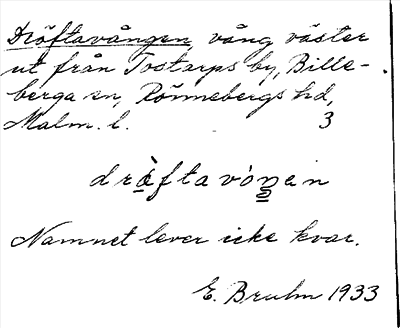 Dröftavången, vång väster
ut från Tostarps by, Bille-
berga sn, Rönnebergs hd,
Malm. l. 3
dräftavòṉen
Namnet lever icke kvar.
E. Bruhn 1933